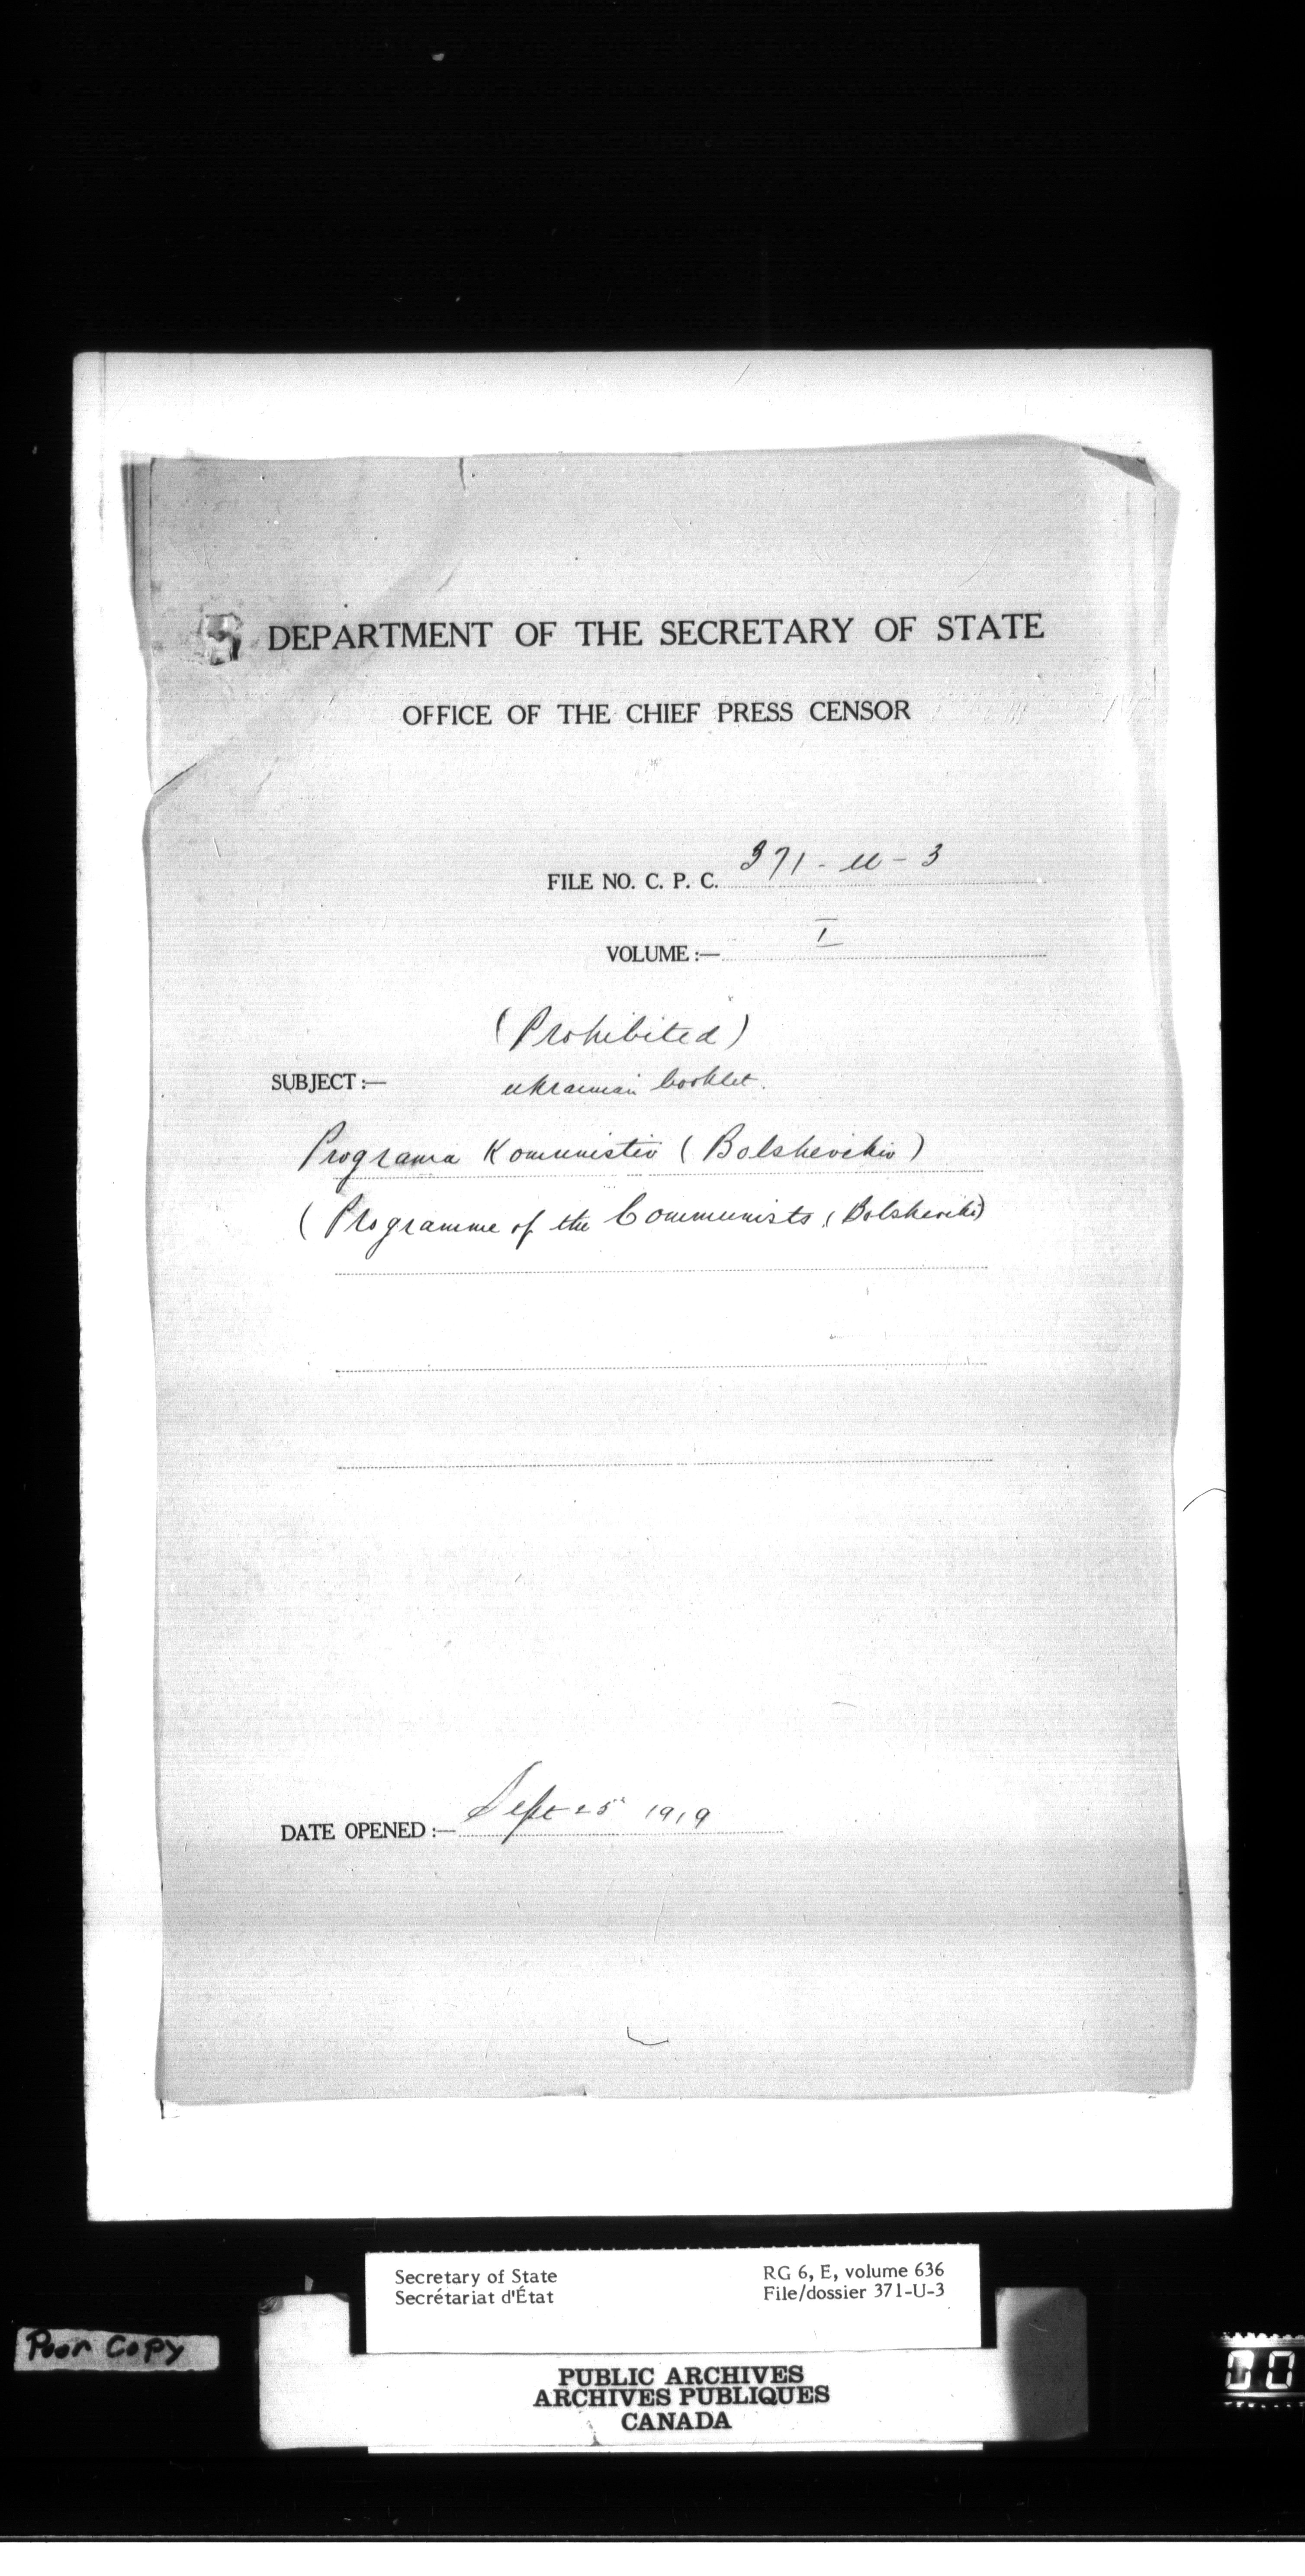 DEPARTMENT OF THE SECRETARY OF STATE
OFFICE OF THE CHIEF PRESS CENSOR
FILE NO. C. P. C. 371-U-3
VOLUME :— I
(Prohibited)
SUBJECT :— Ukrainian booklet.
Programa Komunistiv (Bolshevikiv)
(Programme of the Communists, (Bolsheviki)
DATE OPENED :— Sept 25 1919
Secretary of State RG 6, E, volume 636
Secrétariat d'État File/dossier 371-U-3
Poor Copy
PUBLIC ARCHIVES
ARCHIVES PUBLIQUES
CANADA